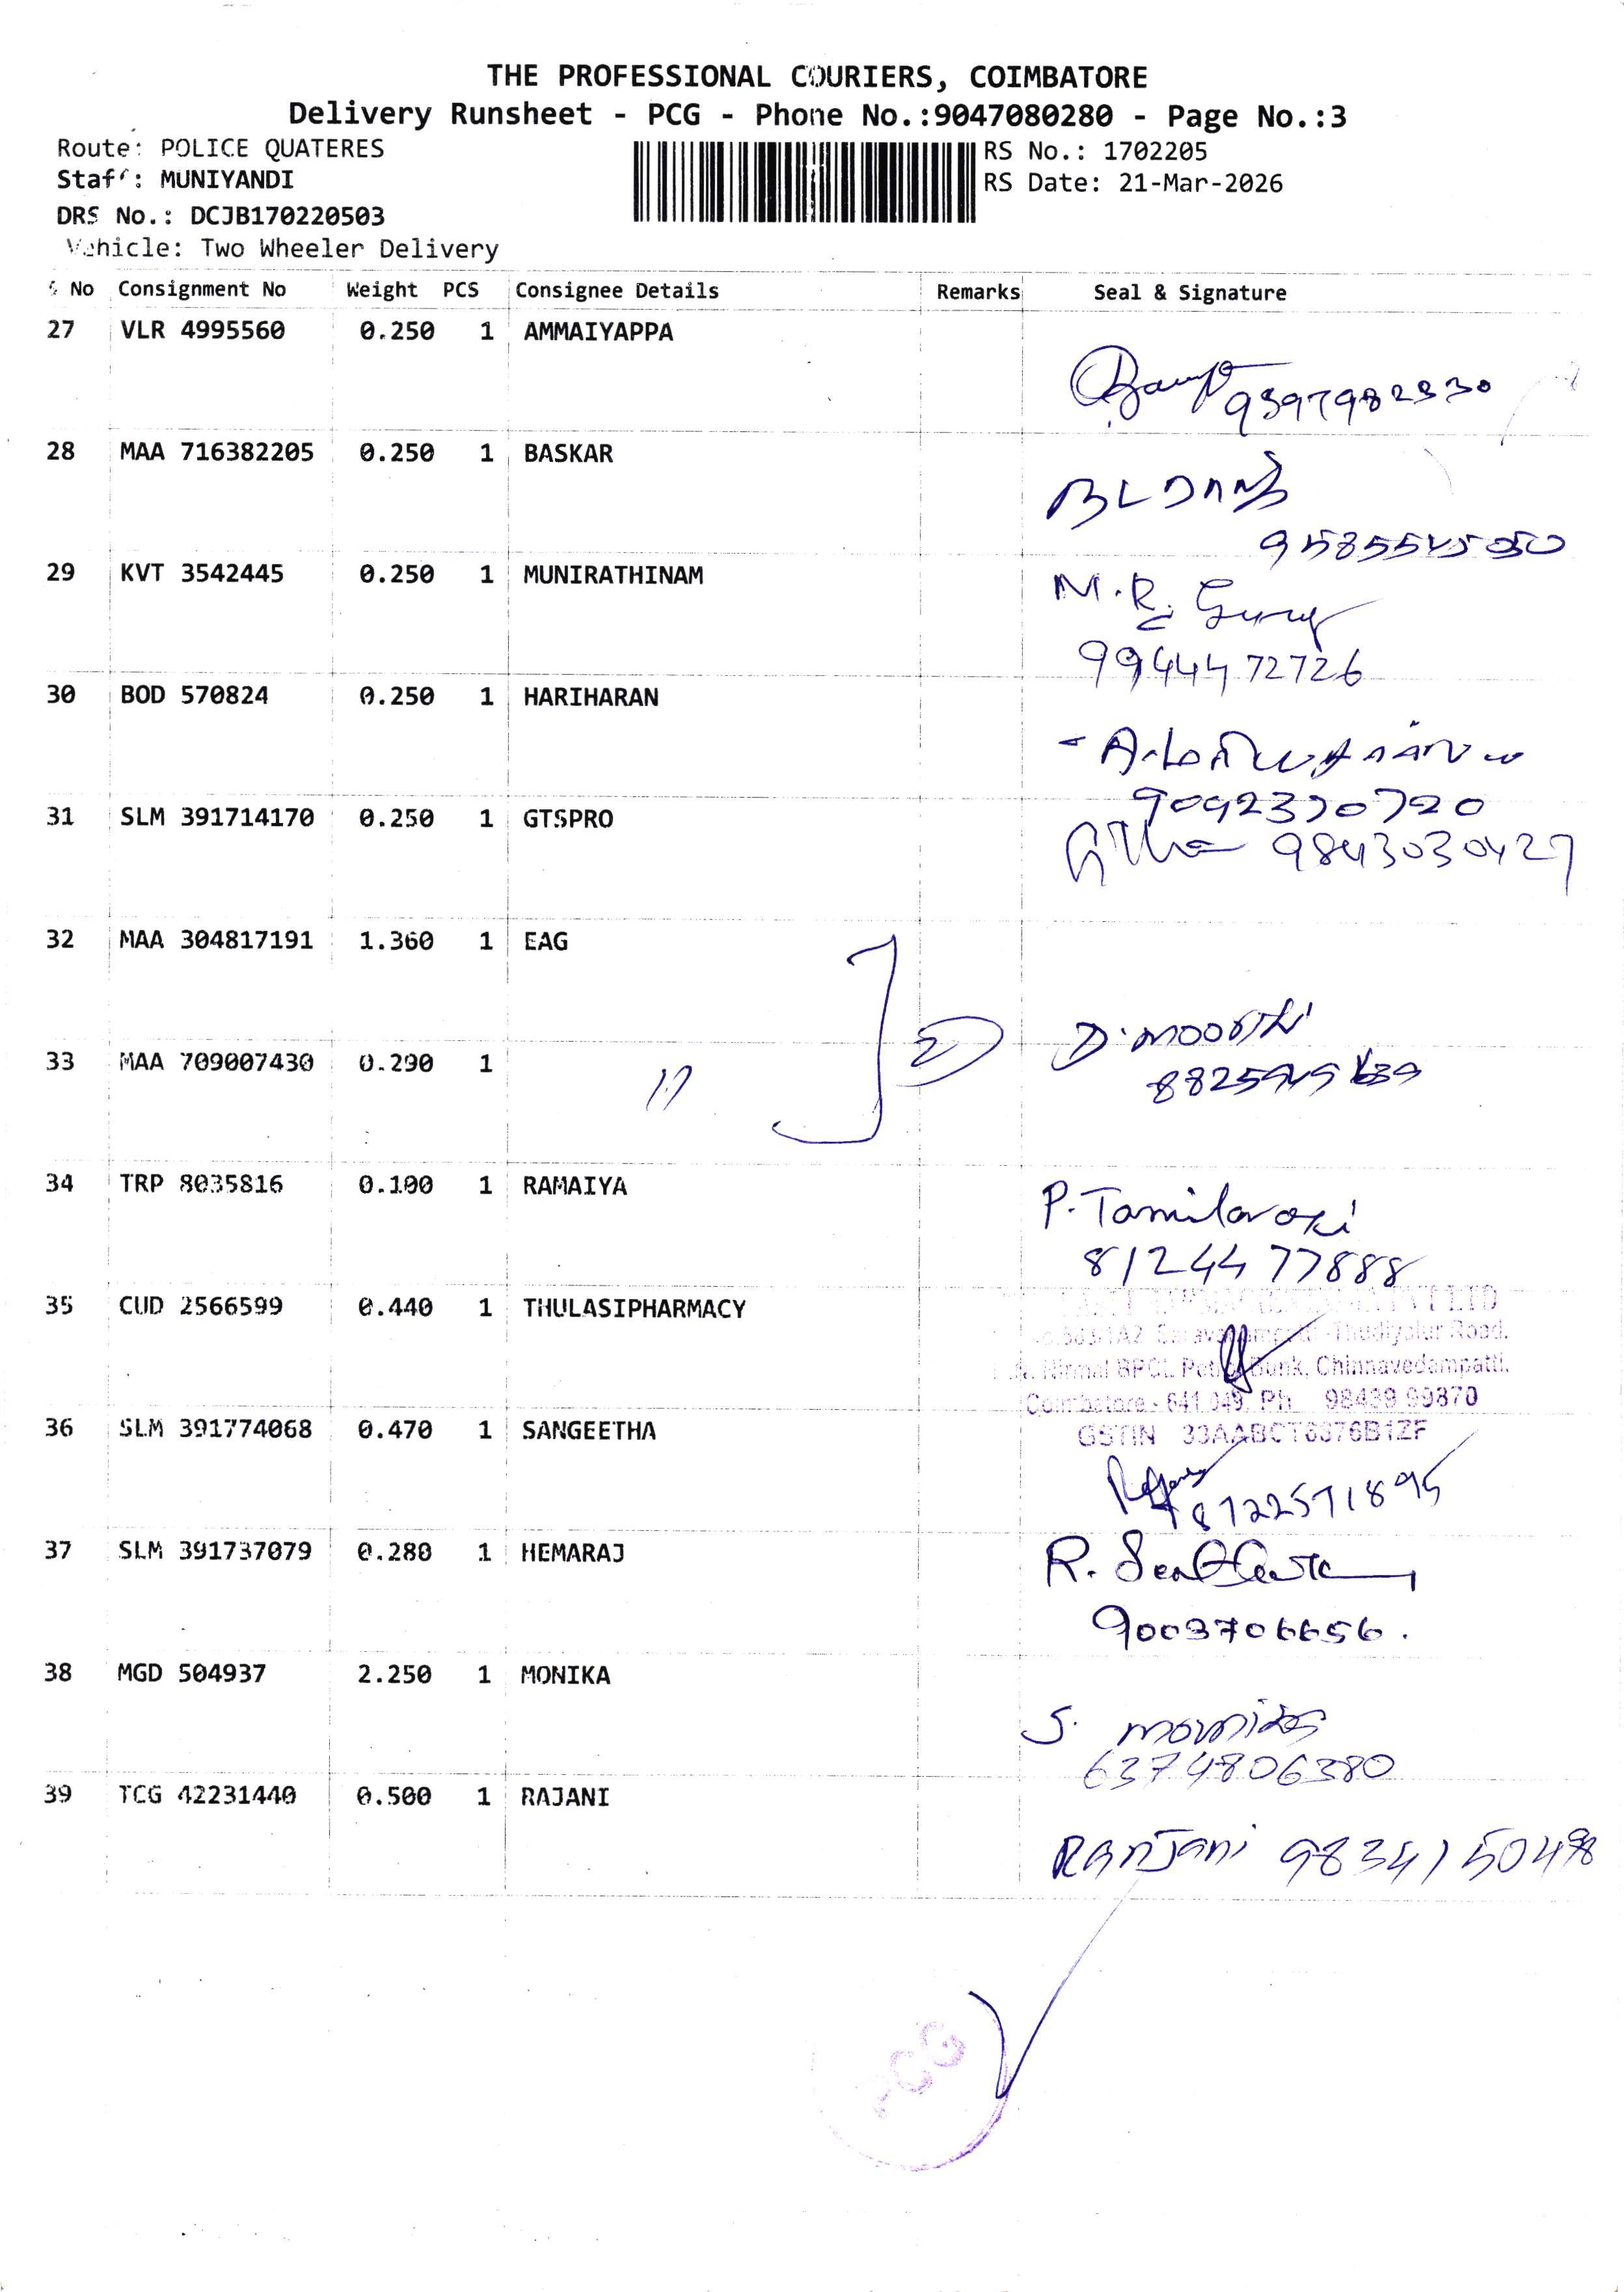 THE PROFESSIONAL COURIERS, COIMBATORE
Delivery Runsheet - PCG - Phone No.:9047080280 - Page No.:3
Route: POLICE QUATERES
RS No.: 1702205
Staff: MUNIYANDI
RS Date: 21-Mar-2026
DRS No.: DCJB170220503
Vehicle: Two Wheeler Delivery
S No Consignment No Weight PCS Consignee Details Remarks Seal & Signature
27 VLR 4995560 0.250 1 AMMAIYAPPA
28 MAA 716382205 0.250 1 BASKAR
9585545050
29 KVT 3542445 0.250 1 MUNIRATHINAM
M.R.
9944472726
30 BOD 570824 0.250 1 HARIHARAN
9092390720
31 SLM 391714170 0.250 1 GTSPRO
9843030427
32 MAA 304817191 1.360 1 EAG
2
D. MOORTHI
33 MAA 709007430 0.290 1 11
34 TRP 8035816 0.100 1 RAMAIYA
P. Tamilarasi
8124477888
35 CUD 2566599 0.440 1 THULASIPHARMACY
Thudiyalur Road.
Nirmal BPCL Petrol Bunk, Chinnavedampatti.
Coimbatore - 641 049. Ph 98439 99870
36 SLM 391774068 0.470 1 SANGEETHA
GSTIN 33AABCT6376B1ZF
37 SLM 391737079 0.280 1 HEMARAJ
R.
9003706656.
38 MGD 504937 2.250 1 MONIKA
S.
6374806380
39 TCG 42231440 0.500 1 RAJANI
RANJani 9834150498
PCG